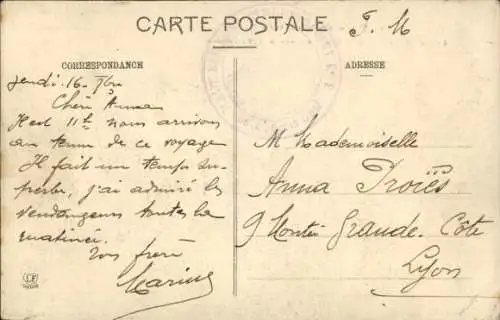 CARTE POSTALE
F. M
CORRESPONDANCE
ADRESSE
Jeudi 16. 7bre
Chère Anna
Il est 11h nous arrivons
au terme de ce voyage
Il fait un temps su-
perbe, j'ai admiré les
vendangeurs toutes la
matinée.
ton frère
Marius
M Mademoiselle
Anna Proïes
9 Montée Grande-Côte
Lyon